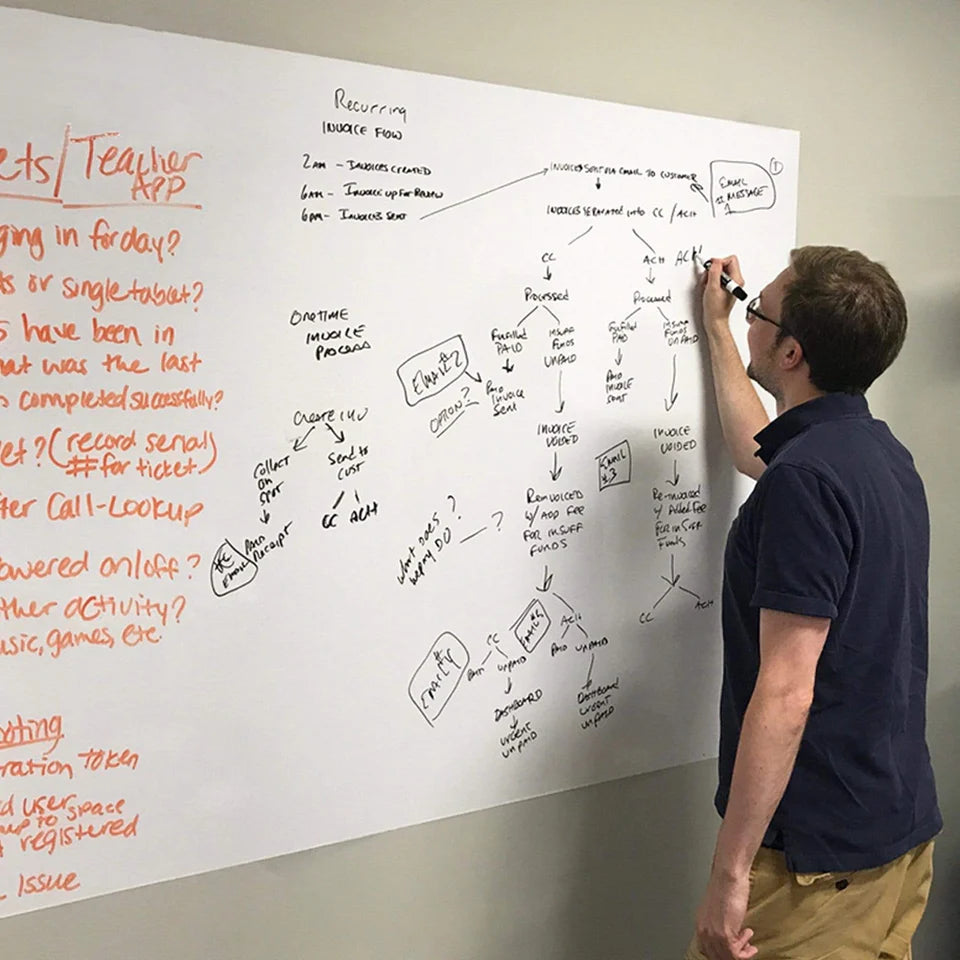 ets/Teacher
APP
ging in for day?
ts or single tablet?
s have been in
hat was the last
s completed successfully?
et? (record serial
# for ticket)
fter Call-Lookup
owered on/off?
ther activity?
usic, games, etc.
oting
ration Token
d user space
up to
registered
Issue
Recurring
INVOICE FLOW
2AM - INVOICES CREATED
6AM - INVOICE UP FOR REVIEW
6PM - INVOICES SENT
INVOICES SENT VIA EMAIL TO CUSTOMER
1
EMAIL
MESSAGE
1
INVOICES SEPARATED INTO CC / ACH
CC
ACH
ACH
Processed
Processed
Fulfilled
PAID
INSUFF
FUNDS
UNPAID
Fulfilled
PAID
INSUFF
FUNDS
UNPAID
EMAIL #2
OPTION?
PAID
Invoice
Sent
PAID
INVOICE
SENT
INVOICE
VOIDED
INVOICE
VOIDED
EMAIL
#3
Reinvoiced
w/ ADD FEE
FOR INSUFF
FUNDS
Re-invoiced
w/ Added Fee
FOR INSUFF
Funds
What does ?
WePay DO
?
CC
ACH
EMAIL #4
EMAIL #5
CC
PAID
UNPAID
ACH
PAID
UNPAID
DASHBOARD
URGENT
UNPAID
DASHBOARD
URGENT
UNPAID
ONETIME
INVOICE
PROCESS
Create INV
Collect
ON
SPOT
Send to
CUST
CC ACH
PAID
Receipt
EMAIL